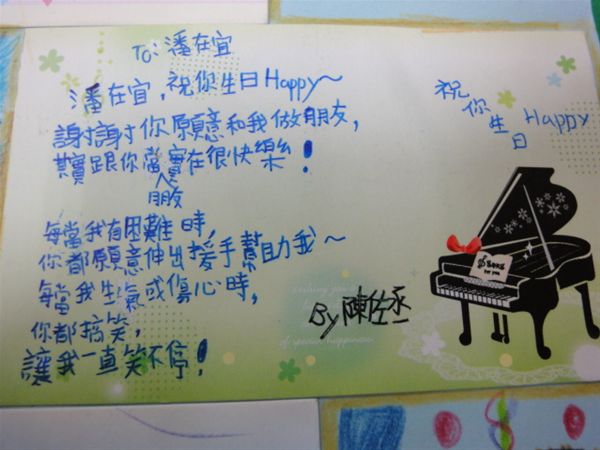 To: 潘在宜
潘在宜，祝你生日Happy～
謝謝你願意和我做朋友，
其實跟你當實在很快樂！
朋友
每當我有困難時，
你都願意伸出援手幫助我～
每當我生氣或傷心時，
你都搞笑，
讓我一直笑不停！
祝你生日Happy
By 陳佐丞